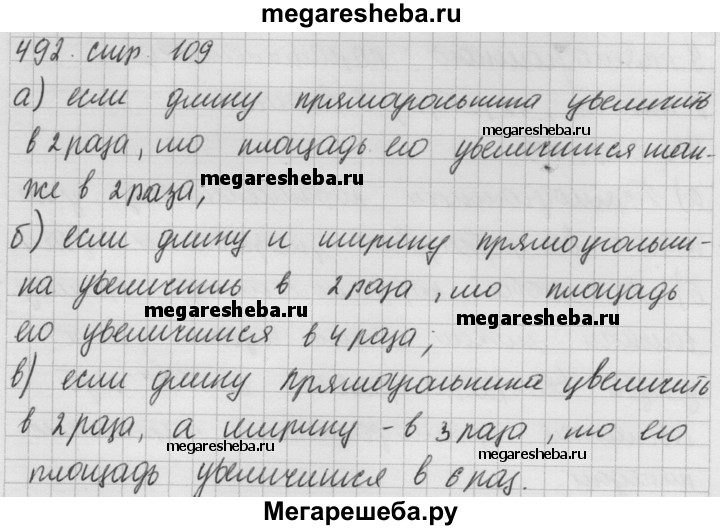 megaresheba.ru
492. стр. 109
а) если длину прямоугольника увеличить
megaresheba.ru
в 2 раза, то площадь его увеличится так-
же в 2 раза;
megaresheba.ru
б) если длину и ширину прямоугольни-
ка увеличить в 2 раза, то площадь
megaresheba.ru
megaresheba.ru
его увеличится в 4 раза;
в) если длину прямоугольника увеличить
в 2 раза, а ширину - в 3 раза, то его
megaresheba.ru
megaresheba.ru
площадь увеличится в 6 раз.
Мегарешеба.ру